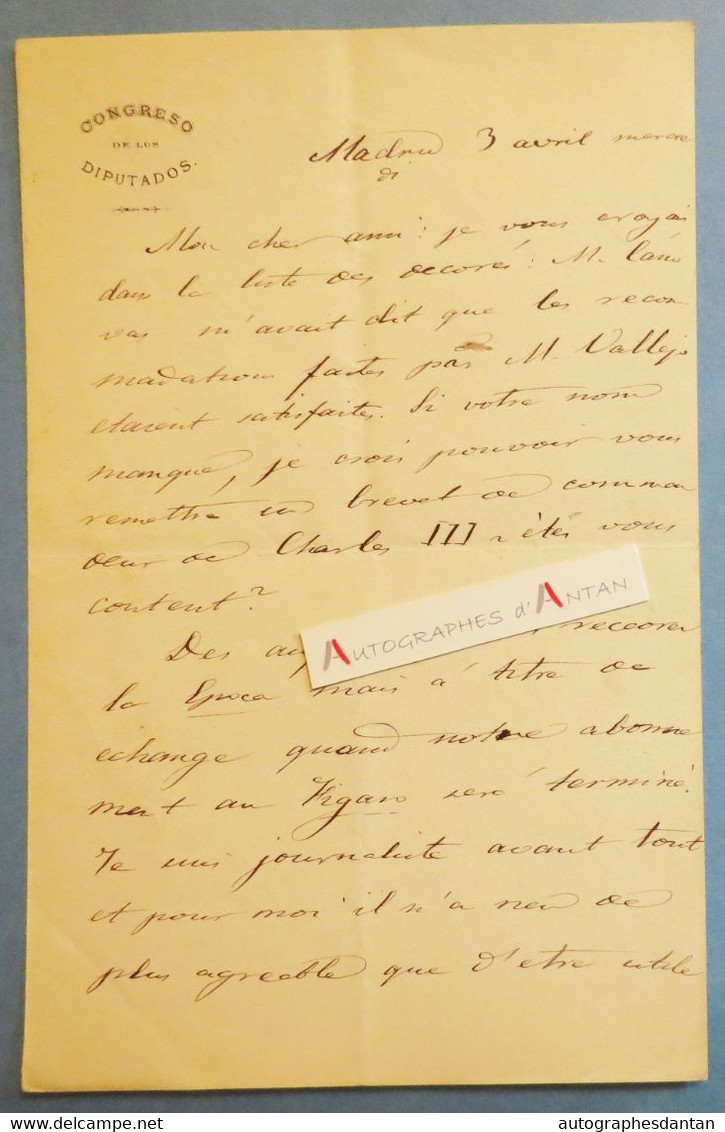 CONGRESO
DE LOS
DIPUTADOS.
Madrid 3 avril mercre
di
Mon cher ami: je vous croyais
dans la liste des decorés: M. Cáno
vas m'avait dit que les recom
madations faites par M. Vallejo
etaient satisfaites. Si votre nom
manque, je crois pouvoir vous
remettre un brevet de comman
deur de Charles III ètes vous
content?
AUTOGRAPHES d'ANTAN
Des
la Epoca mais a' titre de
echange quand notre abonne
ment au Figaro será terminé.
Je suis journaliste avant tout
et pour moi il n'a rien de
plus agreable que d'etre utile
autographesdantan